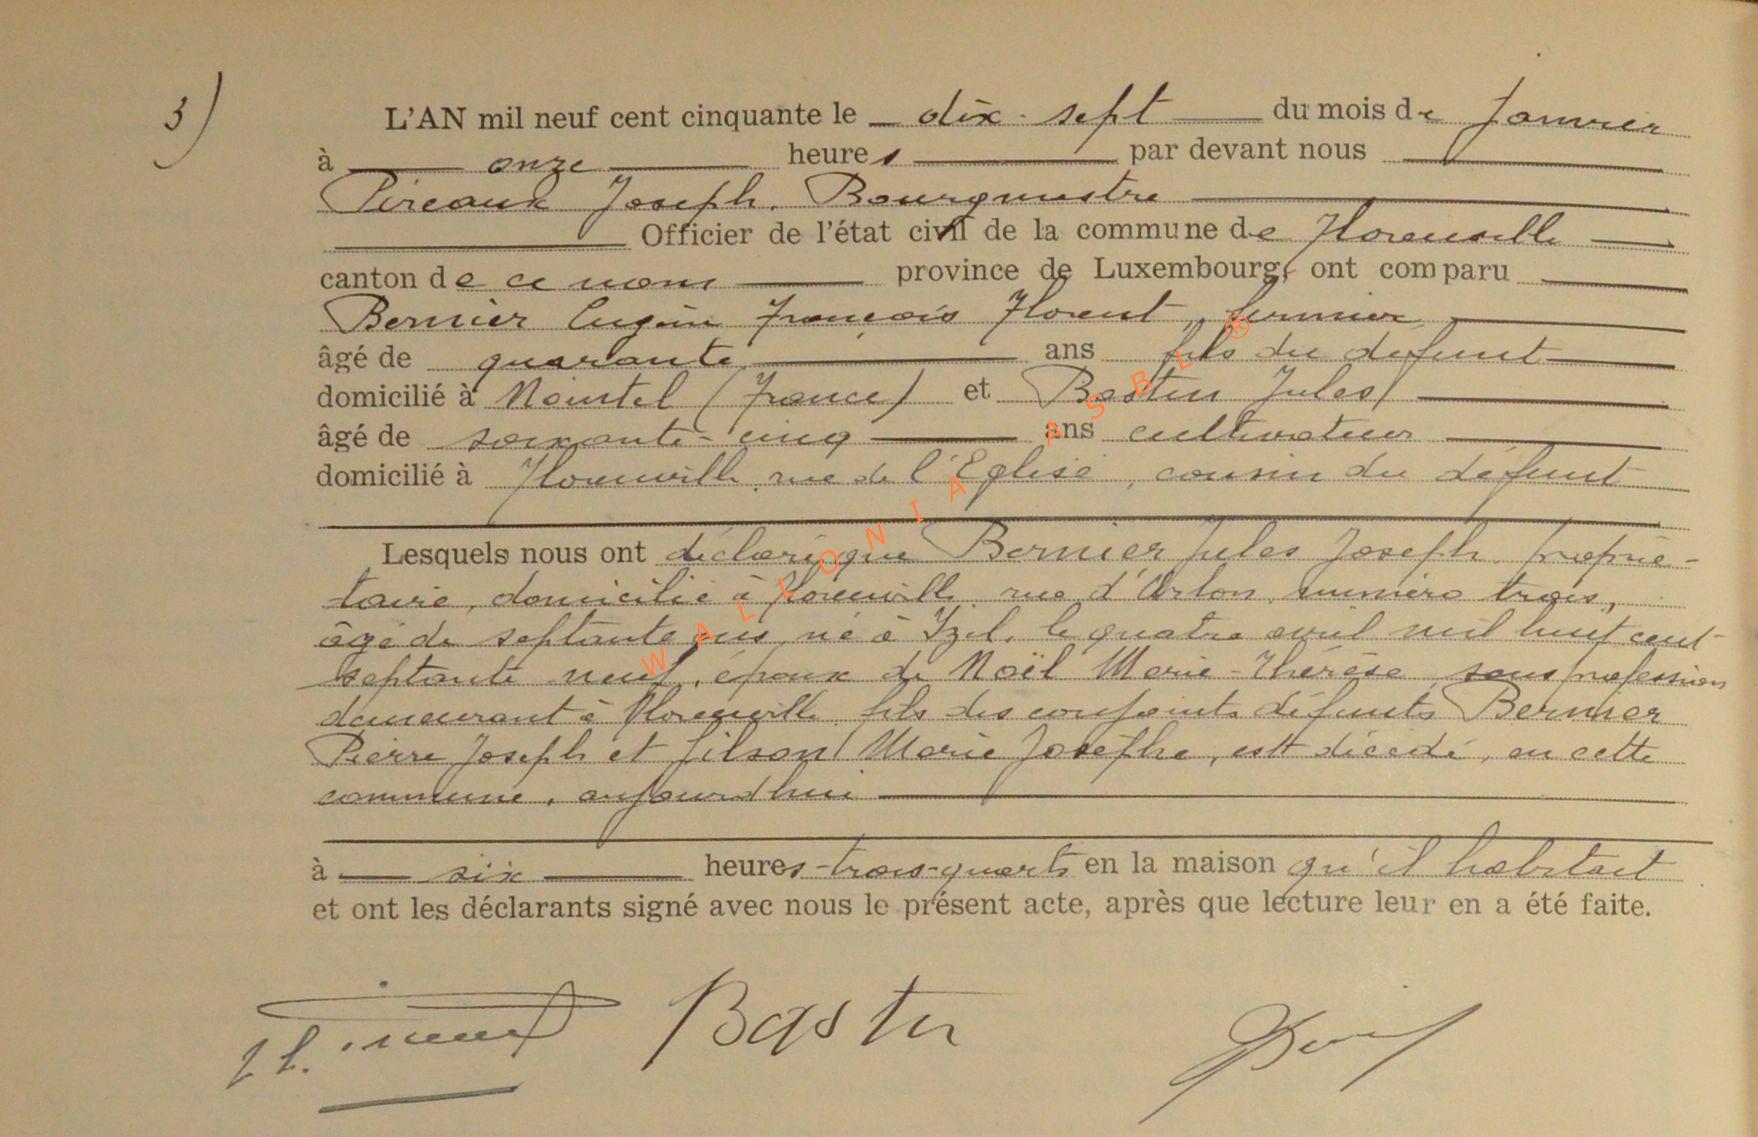 3)
L'AN mil neuf cent cinquante le dix-sept du mois de Janvier
à onze heures par devant nous
Pireaux Joseph, Bourgmestre
Officier de l'état civil de la commune de Florenville
canton de ce nom province de Luxembourg, ont comparu
Bernier Eugène François Florent, fermier
âgé de quarante ans fils du défunt
domicilié à Nointel (France) et Bastin Jules
âgé de soixante-cinq ans cultivateur
domicilié à Florenville, rue de l'Eglise, cousin du défunt
Lesquels nous ont déclaré que Bernier Jules Joseph, proprié-
taire, domicilié à Florenville, rue d'Arlon numéro trois,
âgé de septante ans, né à Izel, le quatre avril mil huit cent
septante neuf, époux de Noël Marie-Thérèse sans profession
demeurant à Florenville, fils des conjoints défunts Bernier
Pierre Joseph et Gilson Marie Josèphe, est décédé, en cette
commune, aujourd'hui
à six heures trois-quarts en la maison qu'il habitait
et ont les déclarants signé avec nous le présent acte, après que lecture leur en a été faite.
Bastin
WALLONIA ASBL ®